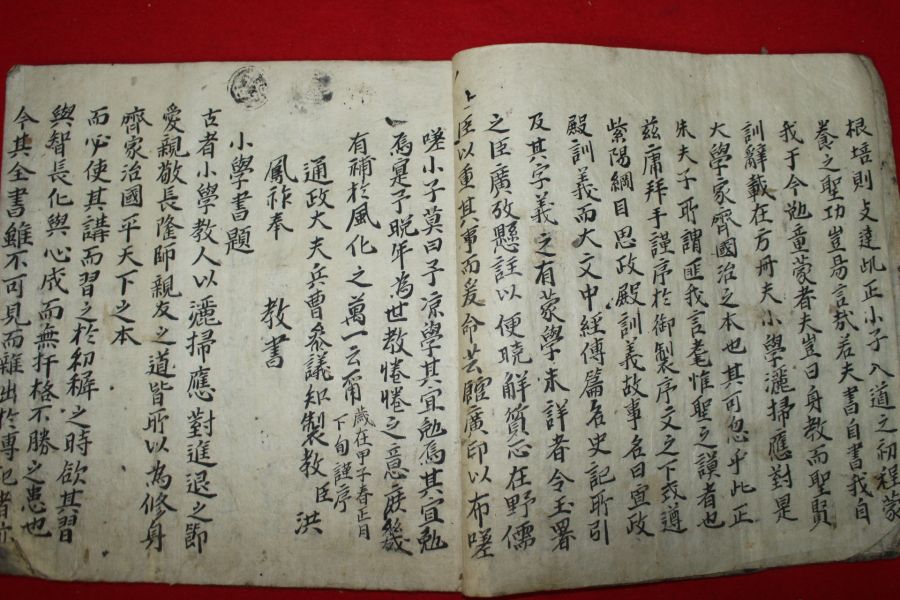 根培則支達此正小子入道之初程蒙
養之聖功豈易言哉若夫書自書我自
我于今勉童蒙者夫豈曰身教而聖賢
訓辭載在方冊夫小學灑掃應對是
大學家齊國治之本也其可忽乎此正
朱夫子所謂匪我言耄惟聖之謨者也
玆庸拜手謹序於御製序文之下或遵
紫陽綱目思政殿訓義故事名曰宣政
殿訓義而大文中經傳篇名史記所引
及其字義之有蒙學未詳者令玉署
之臣廣攷懸註以便曉解質忘在野儒
臣以重其事而爰命芸館廣印以布嗟
嗟小子莫曰予凉學其宜勉焉其宜勉
焉寔予晩年為世教惓惓之意庶幾
有補於風化之萬一云爾歲在甲子春正月下旬謹序
通政大夫兵曹參議知製教臣洪
鳳祚奉 教書
小學書題
古者小學教人以灑掃應對進退之節
愛親敬長隆師親友之道皆所以為修身
齊家治國平天下之本
而必使其講而習之於初穉之時欲其習
與智長化與心成而無扞格不勝之患也
今其全書雖不可見而雜出於傳記者亦